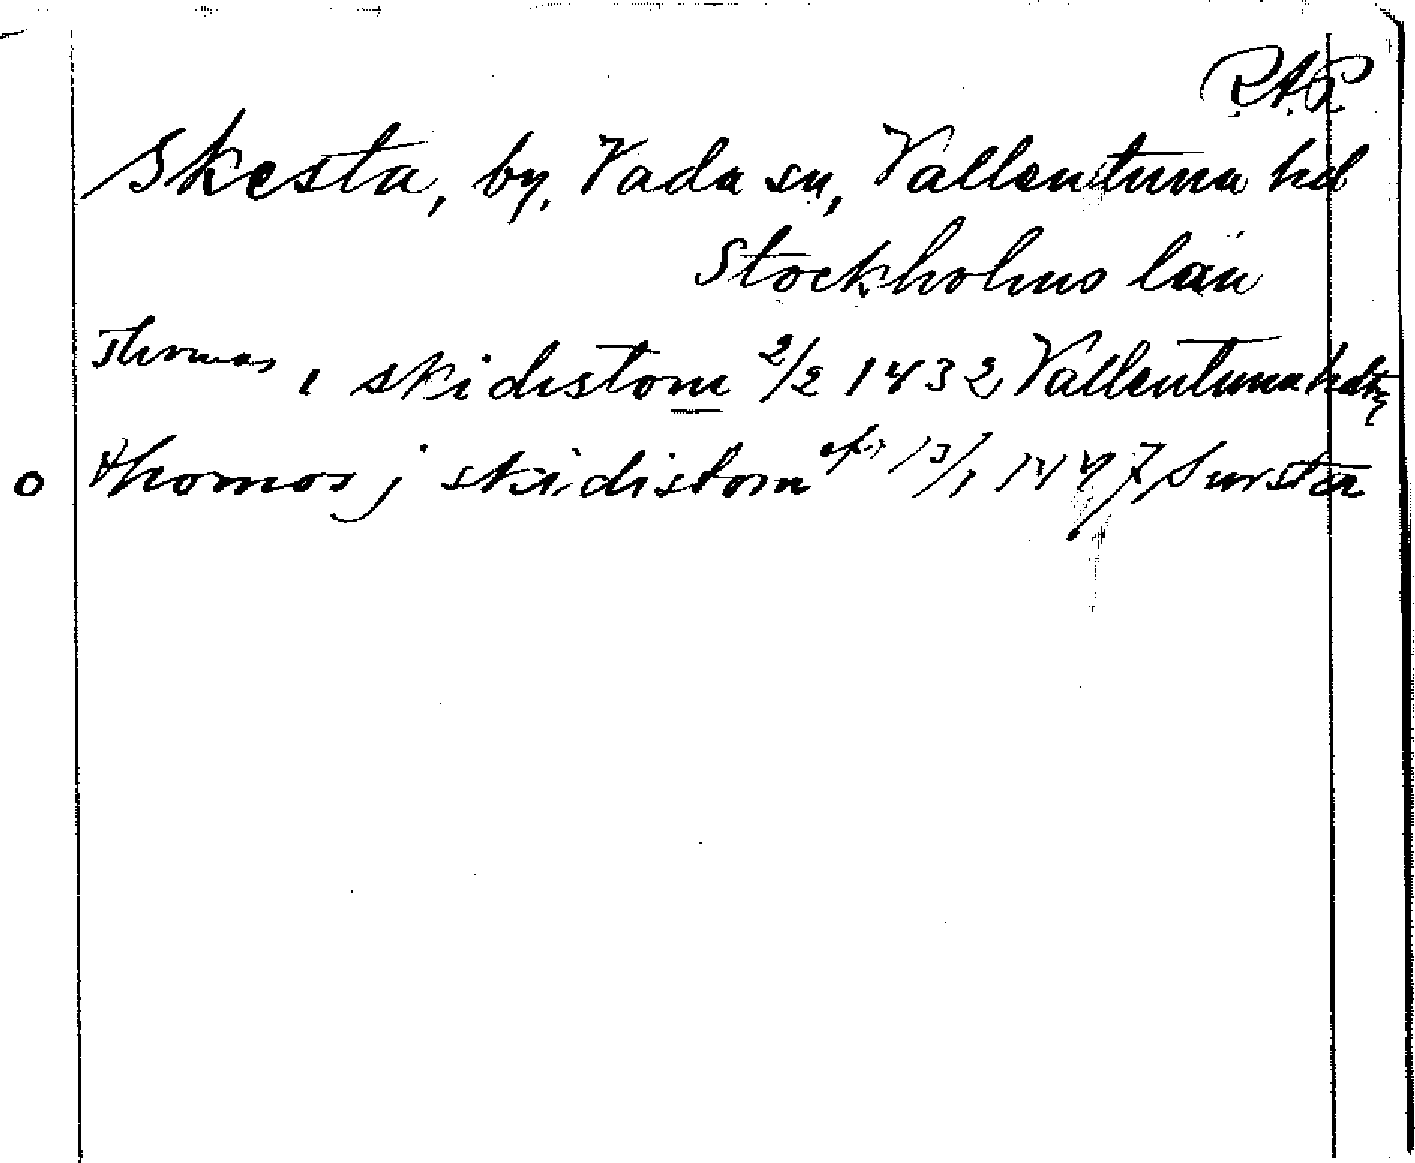 R.A.P.
Skesta, by, Vada sn, Vallentuna hd
Stockholms län
Thomas, i skidistom 2/2 1432 Vallentuna hdtg
o thomos j skidistom 13/1 1447 Sursta